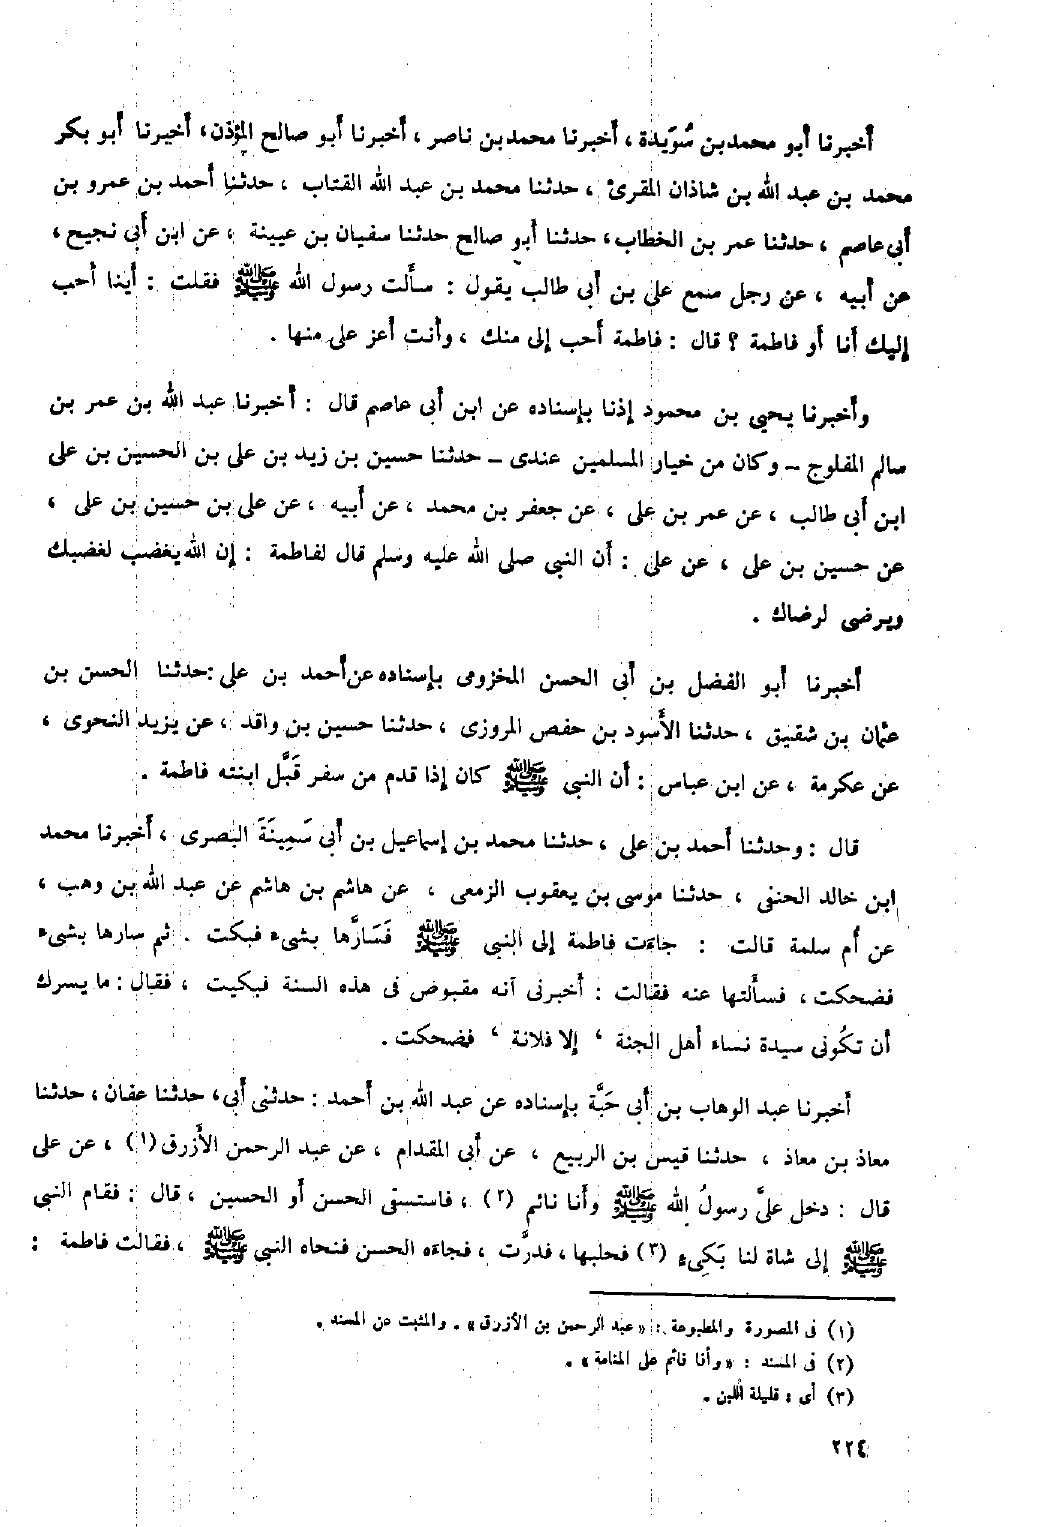 أخبرنا أبو محمد بن سُوَيْدة ، أخبرنا محمد بن ناصر ، أخبرنا أبو صالح المؤذن، أخبرنا أبو بكر
محمد بن عبد الله بن شاذان المقرئ ، حدثنا محمد بن عبد الله القتاب ، حدثنا أحمد بن عمرو بن
أبى عاصم ، حدثنا عمر بن الخطاب، حدثنا أبو صالح حدثنا سفيان بن عيينة ، عن ابن أبى نجيح ،
عن أبيه ، عن رجل سمع على بن أبى طالب يقول : سألت رسول الله ﷺ فقلت : أينا أحب
إليك أنا أو فاطمة ؟ قال : فاطمة أحب إلى منك ، وأنت أعز على منها .
وأخبرنا يحيى بن محمود إذنا بإسناده عن ابن أبى عاصم قال : أخبرنا عبد الله بن عمر بن
سالم المفلوج – وكان من خيار المسلمين عندى – حدثنا حسين بن زيد بن على بن الحسين بن على
ابن أبى طالب ، عن عمر بن على ، عن جعفر بن محمد ، عن أبيه ، عن على بن حسين بن على ،
عن حسين بن على ، عن على : أن النبى صلى الله عليه وسلم قال لفاطمة : إن الله يغضب لغضبك
ويرضى لرضاك .
أخبرنا أبو الفضل بن أبى الحسن المخزومى بإسناده عن أحمد بن على :حدثنا الحسن بن
عثمان بن شقيق ، حدثنا الأسود بن حفص المروزى ، حدثنا حسين بن واقد ، عن يزيد النحوى ،
عن عكرمة ، عن ابن عباس : أن النبى ﷺ كان إذا قدم من سفر قَبَّل ابنته فاطمة .
قال : وحدثنا أحمد بن على ، حدثنا محمد بن إسماعيل بن أبى سَمِينَةَ البصرى ، أخبرنا محمد
ابن خالد الحنفى ، حدثنا موسى بن يعقوب الزمعى ، عن هاشم بن هاشم عن عبد الله بن وهب ،
عن أم سلمة قالت : جاءت فاطمة إلى النبى ﷺ فَسَارَّها بشىء فبكت . ثم سارها بشىء
فضحكت ، فسألتها عنه فقالت : أخبرنى أنه مقبوض فى هذه السنة فبكيت ، فقال : ما يسرك
أن تكُونى سيدة نساء أهل الجنة ، إلا فلانة ، فضحكت .
أخبرنا عبد الوهاب بن أبى حَبَّة بإسناده عن عبد الله بن أحمد : حدثنى أبى، حدثنا عفان ، حدثنا
معاذ بن معاذ ، حدثنا قيس بن الربيع ، عن أبى المقدام ، عن عبد الرحمن الأزرق (١) ، عن على
قال : دخل علىَّ رسولُ الله ﷺ وأنا نائم (٢) ، فاستسقى الحسن أو الحسين ، قال : فقام النبى
ﷺ إلى شاة لنا بَكِىء (٣) فحلبها ، فدرَّت ، فجاءه الحسن فنحاه النبى ﷺ ، فقالت فاطمة :
(١) فى المصورة والمطبوعة : « عبد الرحمن بن الأزرق » . والمثبت عن المسند .
(٢) فى المسند : « وأنا نائم على المنامة » .
(٣) أى : قليلة اللبن .
٢٢٤